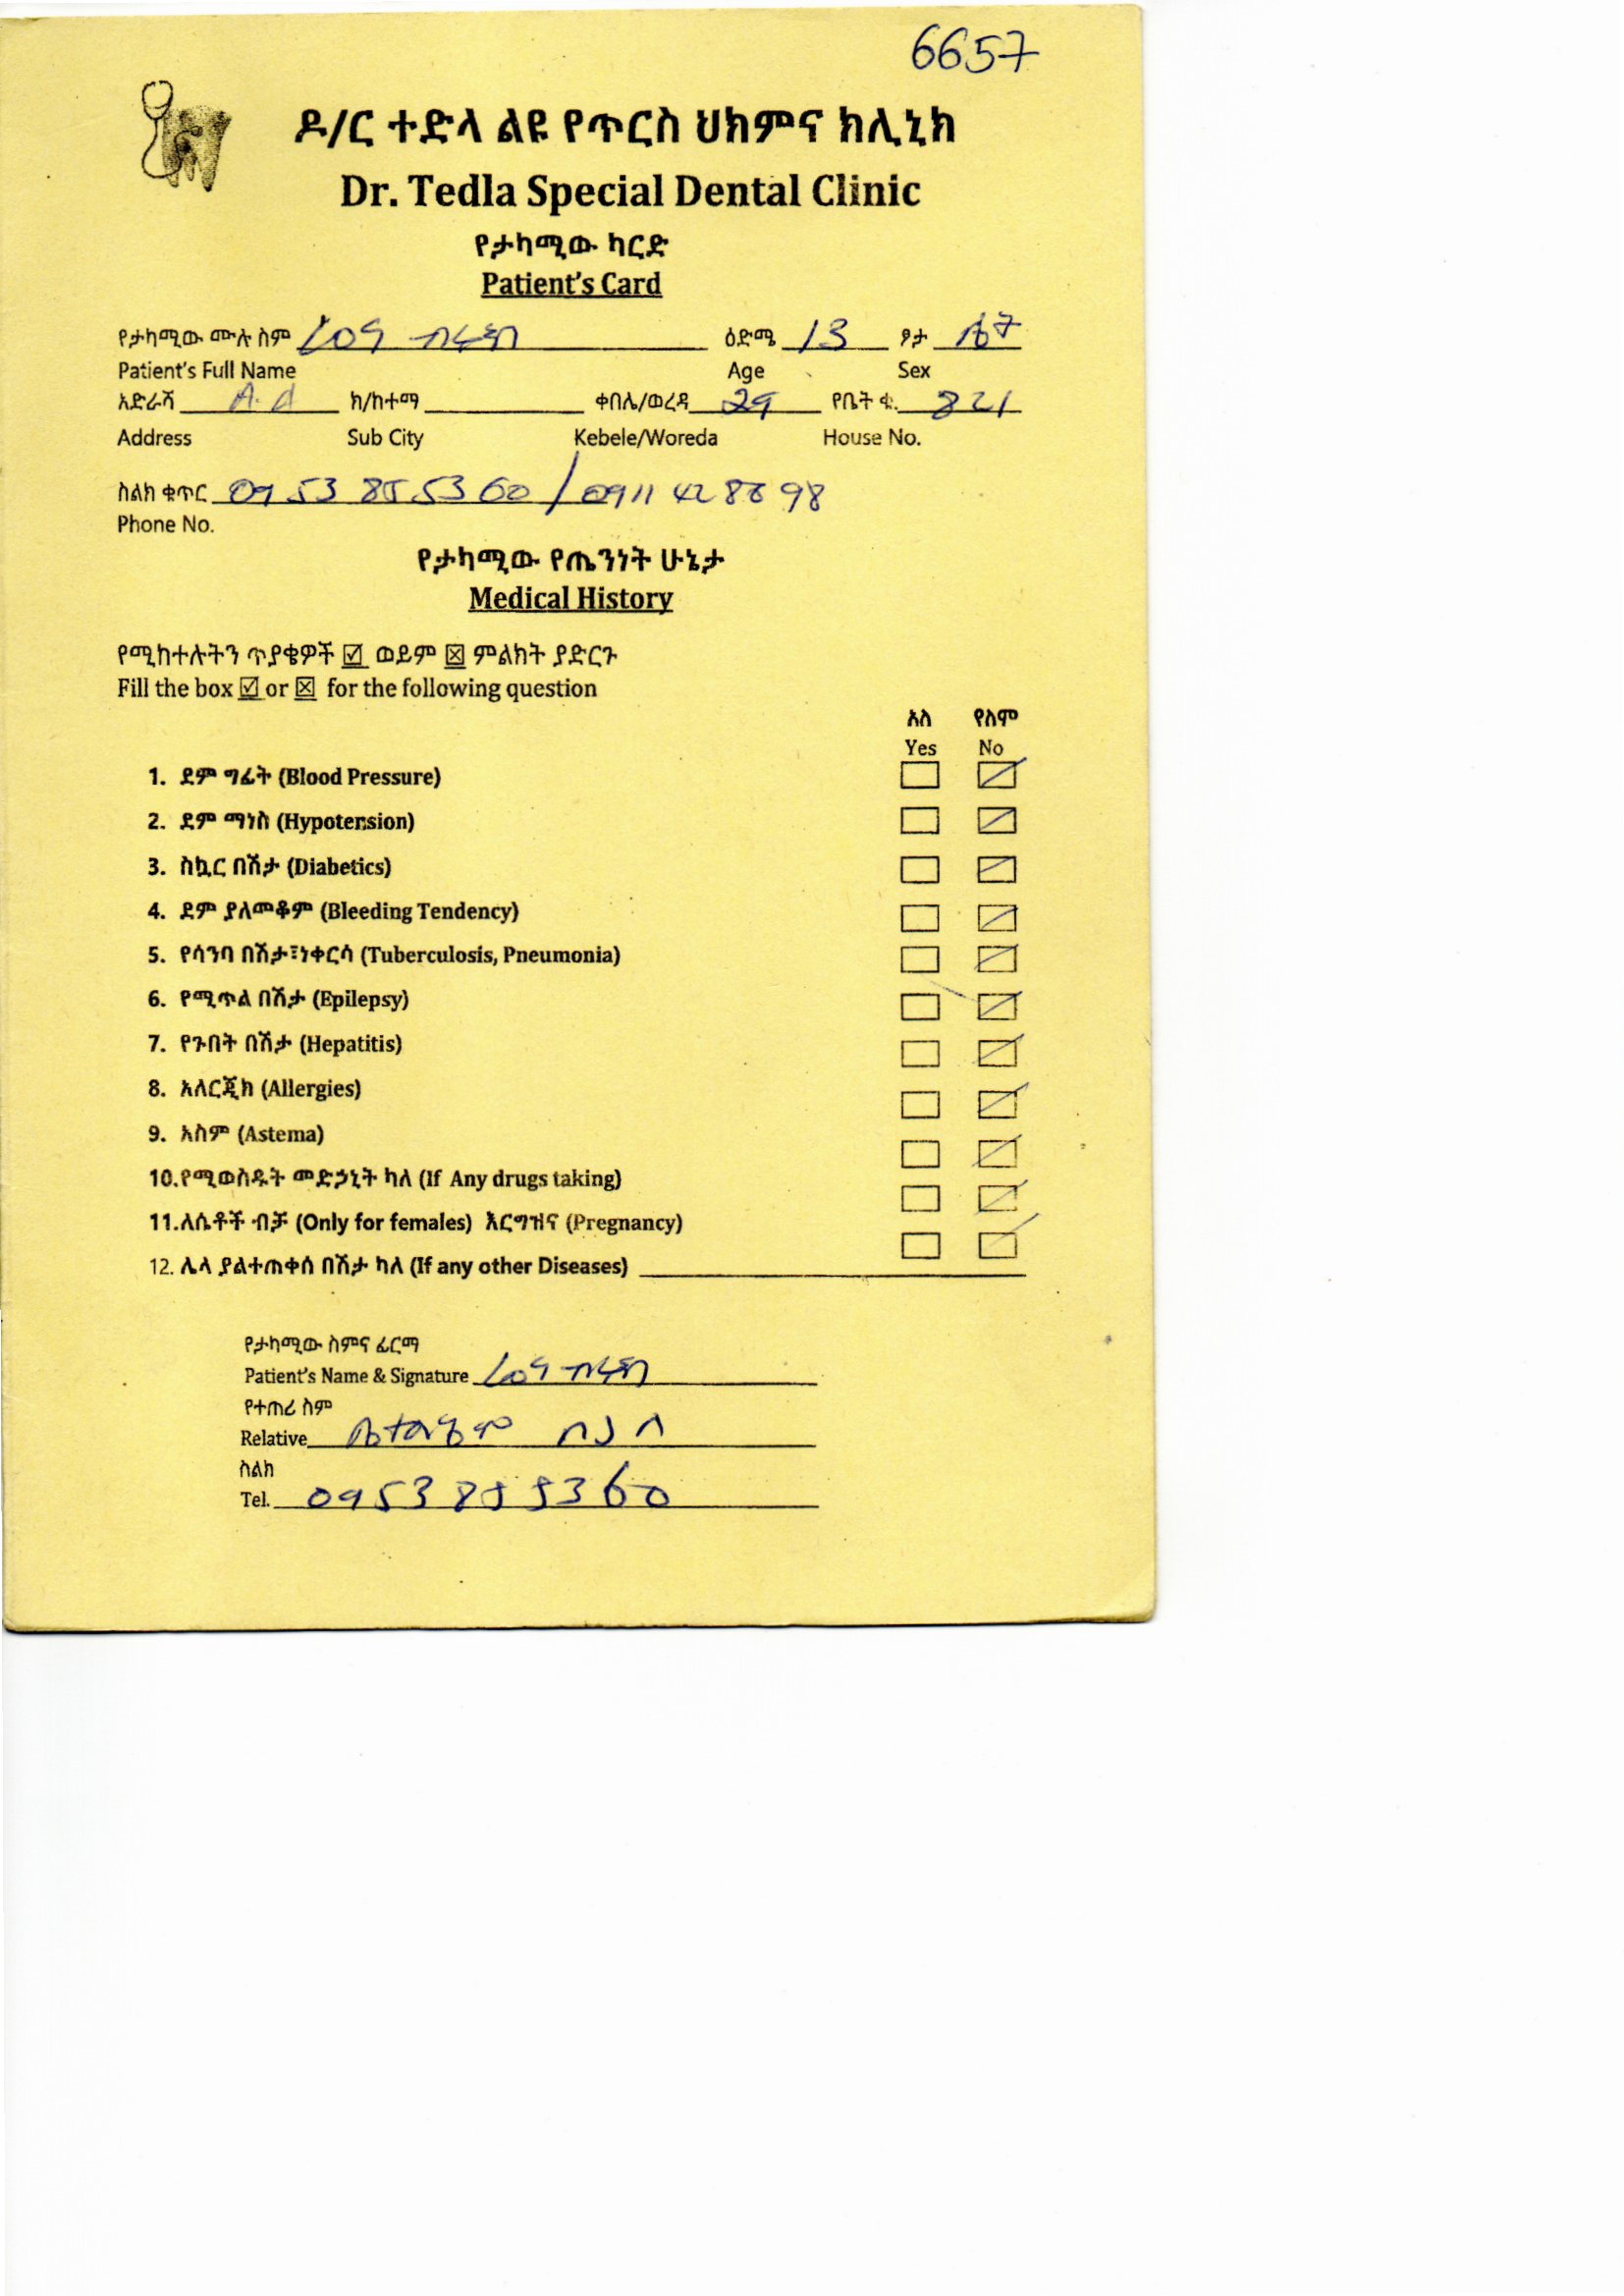 6657
ዶ/ር ተድላ ልዩ የጥርስ ህክምና ክሊኒክ
Dr. Tedla Special Dental Clinic
የታካሚው ካርድ
Patient's Card
የታካሚው ሙሉ ስም ዕድሜ 13 ፆታ ሴት
Patient's Full Name Age Sex
አድራሻ A.A ክ/ከተማ ቀበሌ/ወረዳ 29 የቤት ቁ. 821
Address Sub City Kebele/Woreda House No.
ስልክ ቁጥር
Phone No.
የታካሚው የጤንነት ሁኔታ
Medical History
የሚከተሉትን ጥያቄዎች ☑ ወይም ☒ ምልክት ያድርጉ
Fill the box ☑ or ☒ for the following question
አለ የለም
Yes No
1. ደም ግፊት (Blood Pressure)
2. ደም ማነስ (Hypotension)
3. ስኳር በሽታ (Diabetics)
4. ደም ያለመቆም (Bleeding Tendency)
5. የሳንባ በሽታ፣ነቀርሳ (Tuberculosis, Pneumonia)
6. የሚጥል በሽታ (Epilepsy)
7. የጉበት በሽታ (Hepatitis)
8. አለርጂክ (Allergies)
9. አስም (Astema)
10.የሚወስዱት መድኃኒት ካለ (If Any drugs taking)
11.ለሴቶች ብቻ (Only for females) እርግዝና (Pregnancy)
12. ሌላ ያልተጠቀሰ በሽታ ካለ (If any other Diseases)
የታካሚው ስምና ፊርማ
Patient's Name & Signature
የተጠሪ ስም
Relative
ስልክ
Tel. 0953855360